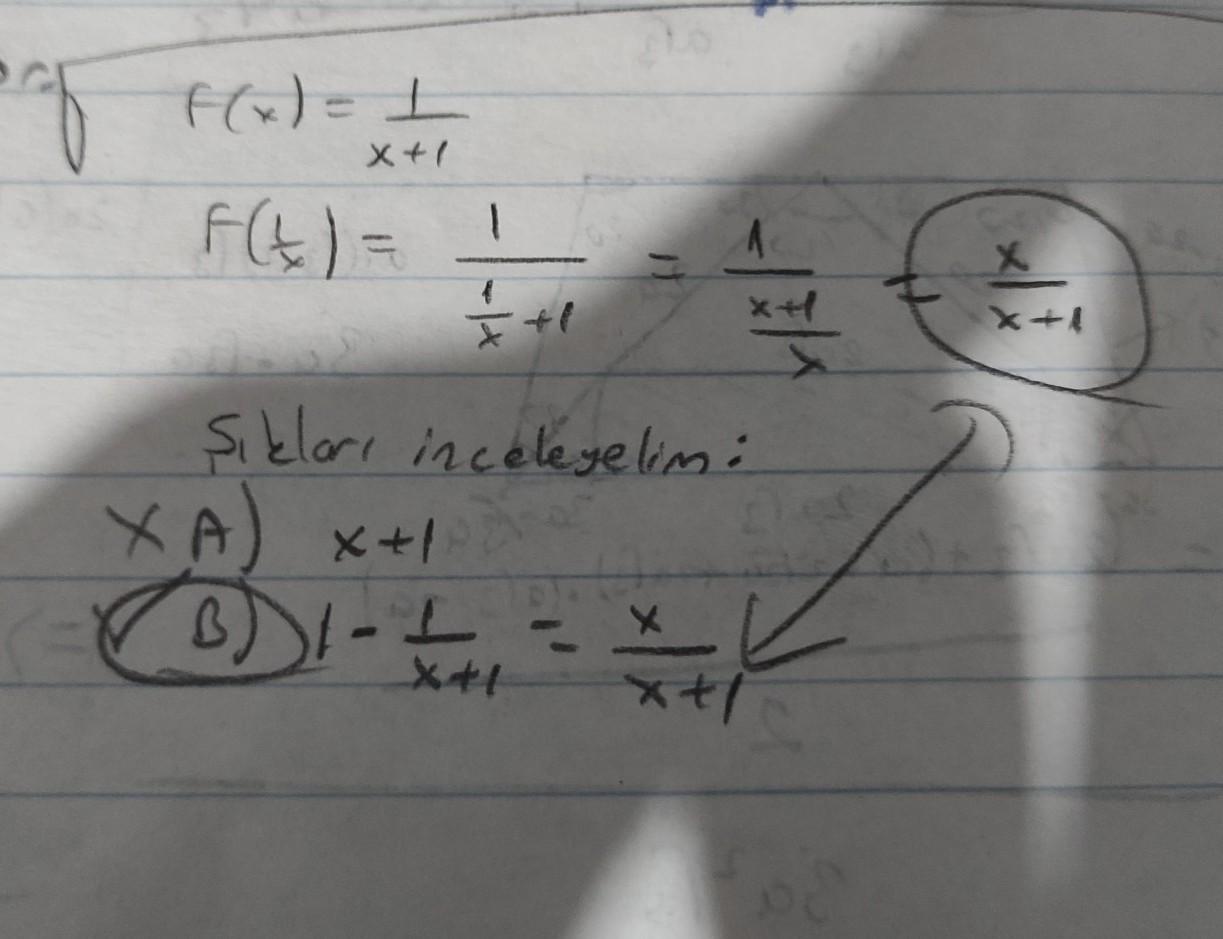 F(x) = 1/(x+1)
F(1/x) = 1/(1/x +1) = 1/((x+1)/x) = x/(x+1)
Şıkları inceleyelim:
X A) x+1
✓ B) 1 - 1/(x+1) = x/(x+1)